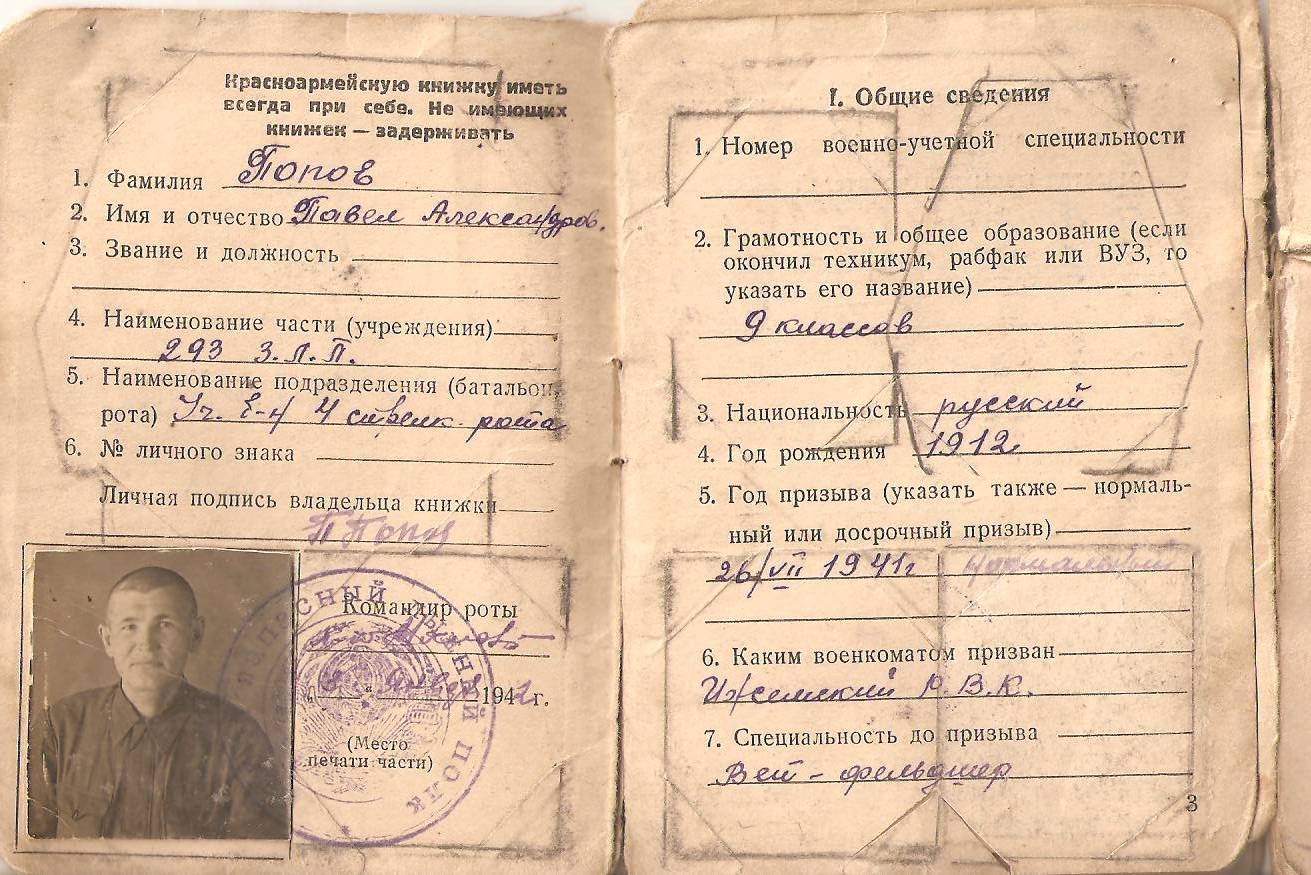 Красноармейскую книжку иметь
всегда при себе. Не имеющих
книжек — задерживать
1. Фамилия Попов
2. Имя и отчество Павел Александров.
3. Звание и должность
4. Наименование части (учреждения)
293 З.Л.П.
5. Наименование подразделения (батальон,
рота) Уч. б-н 4 стрелк. рота
6. № личного знака
Личная подпись владельца книжки
П Попов
Командир роты
1942 г.
(Место
печати части)
ЗАПАСНЫЙ ЛЫЖНЫЙ ПОЛК
I. Общие сведения
1. Номер военно-учетной специальности
2. Грамотность и общее образование (если
окончил техникум, рабфак или ВУЗ, то
указать его название)
9 классов
3. Национальность русский
4. Год рождения 1912г
5. Год призыва (указать также — нормаль-
ный или досрочный призыв)
26/VII 1941г нормальный
6. Каким военкоматом призван
Ижемский Р.В.К.
7. Специальность до призыва
Вет-фельдшер
3